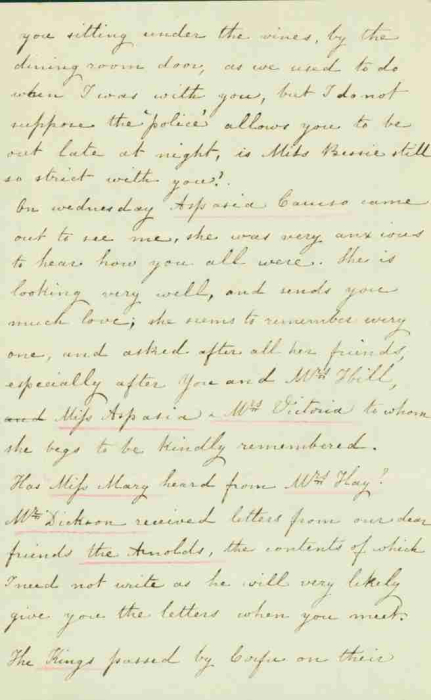 you sitting under the vines, by the
dining room door, as we used to do
when I was with you, but I do not
suppose the "police" allows you to be
out late at night, is Miss Bessie still
so strict with you?
On wednesday Aspasia Caruso came
out to see me, she was very anxious
to hear how you all were. She is
looking very well, and sends you
much love; she seems to remember every
one, and asked after all her friends,
especially after You and Mrs Hill,
and Miss Aspasia & Mrs Victoria to whom
she begs to be kindly remembered.
Has Miss Mary heard from Mrs Hay?
Mr Dickson received letters from our dear
friends the Arnolds, the contents of which
I need not write as he will very likely
give you the letters when you meet.
The Kings passed by Corfu on their